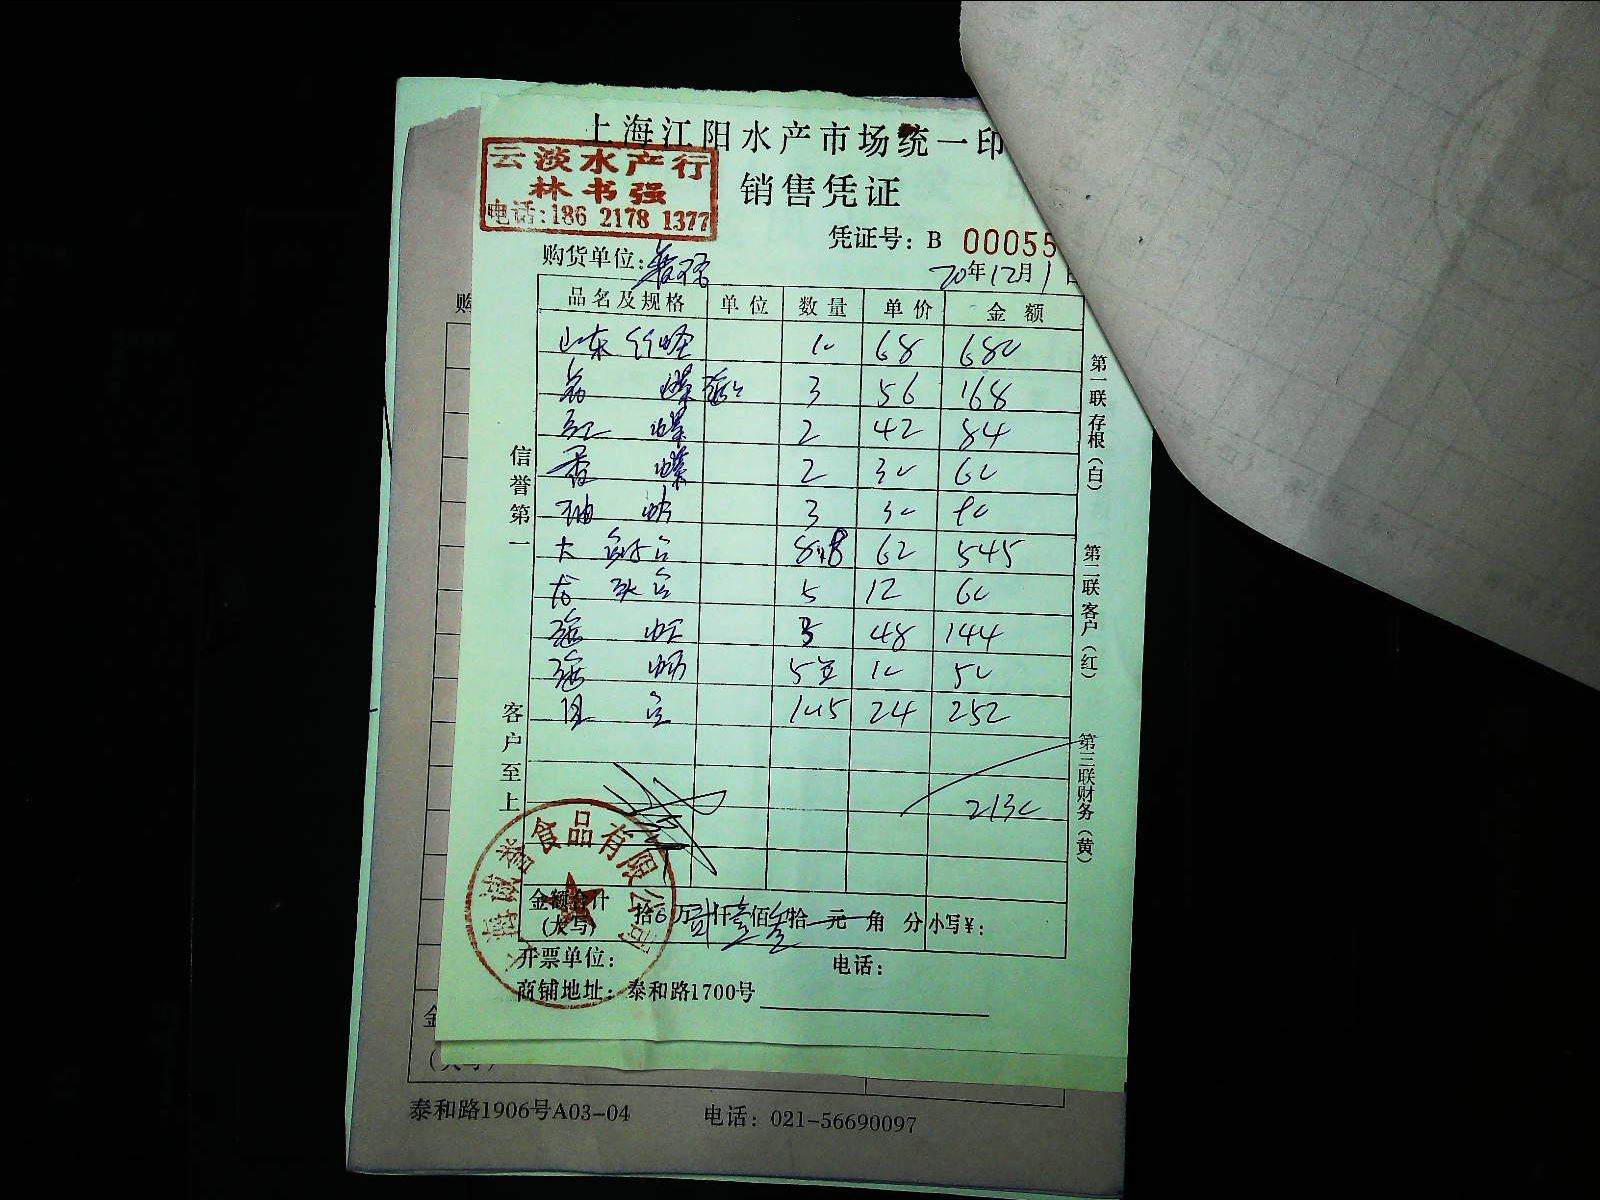 上海江阳水产市场统一印
云淡水产行
林书强
电话:186 2178 1377
销售凭证
凭证号: B 00055
购货单位:
20年12月1日
品名及规格 单位 数量 单价 金额
山东 10 68 680
螺 3 56 168
红 螺 2 42 84
香 螺 2 30 60
3 30 90
大 8.8 62 545
龙头 5 12 60
3 48 144
5 10 50
10.5 24 252
2130
信誉第一
客户至上
第一联存根(白)
第二联客户(红)
第三联财务(黄)
食品有限公司
金额合计
(大写)
拾 万 仟壹佰叁拾 元 角 分 小写¥:
开票单位: 电话:
商铺地址: 泰和路1700号
购
金
(大写)
泰和路1906号A03-04 电话: 021-56690097